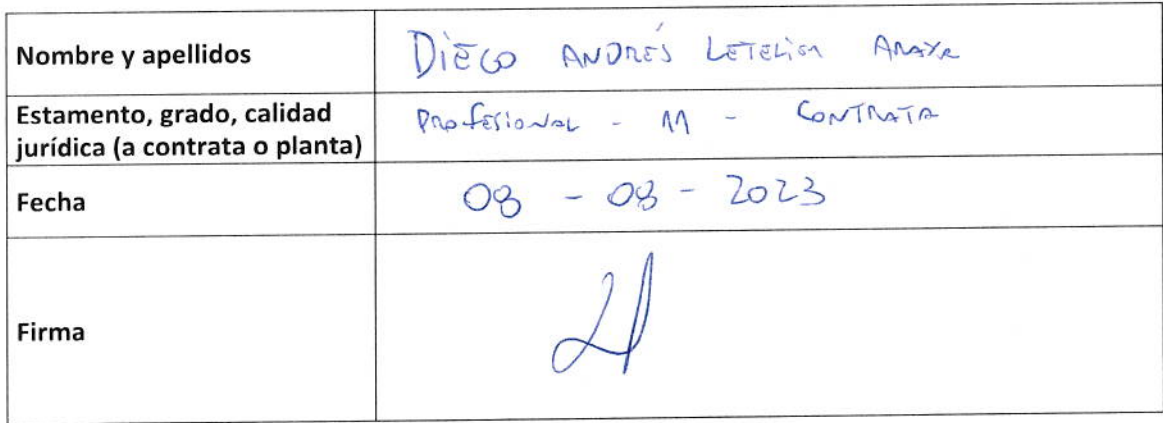 Nombre y apellidos
DiEGO ANDRÉS LETELiER ARAYA
Estamento, grado, calidad
jurídica (a contrata o planta)
Profesional - 11 - CONTRATA
Fecha
08 - 08 - 2023
Firma